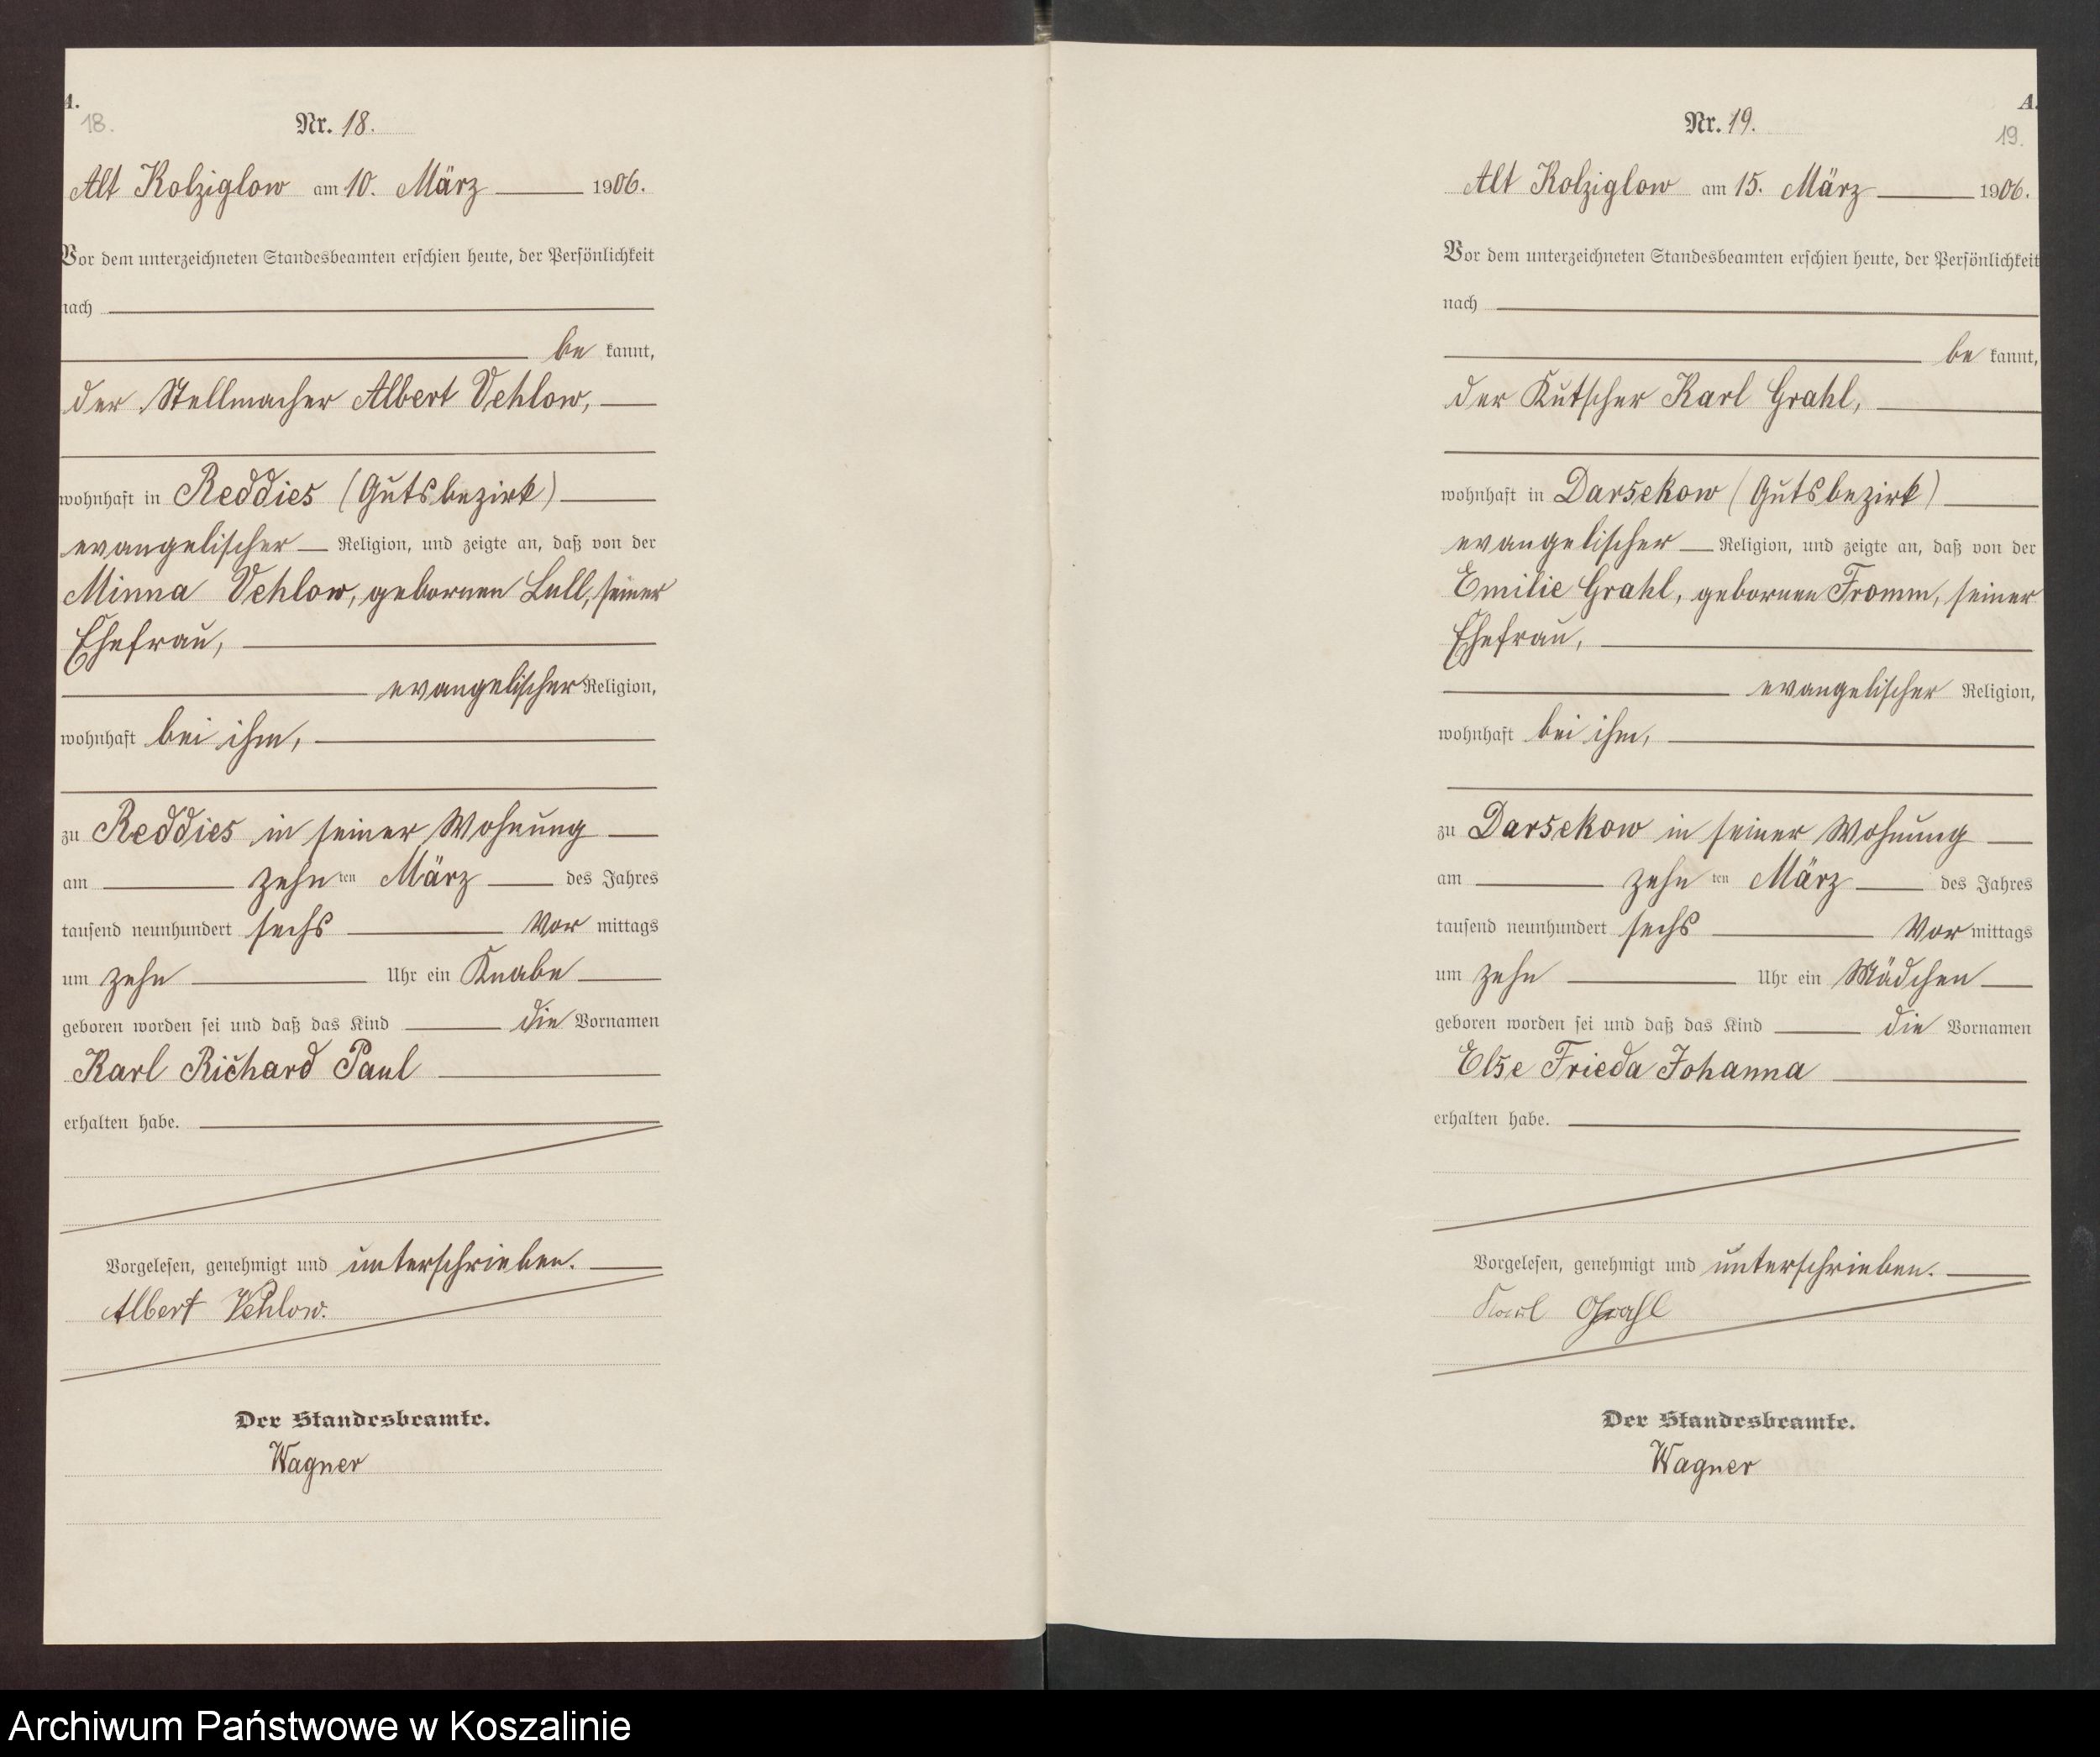 A.
18.
Nr. 18.
Alt Kolziglow am 10. März 1906.
Vor dem unterzeichneten Standesbeamten erschien heute, der Persönlichkeit
nach
be kannt,
der Stellmacher Albert Vehlow,
wohnhaft in Reddies (Gutsbezirk)
evangelischer Religion, und zeigte an, daß von der
Minna Vehlow, gebornen Lull, seiner
Ehefrau,
evangelischer Religion,
wohnhaft bei ihm,
zu Reddies in seiner Wohnung
am zehn ten März des Jahres
tausend neunhundert sechs Vor mittags
um zehn Uhr ein Knabe
geboren worden sei und daß das Kind die Vornamen
Karl Richard Paul
erhalten habe.
Vorgelesen, genehmigt und unterschrieben.
Albert Vehlow.
Der Standesbeamte.
Wagner
A.
19.
Nr. 19.
Alt Kolziglow am 15. März 1906.
Vor dem unterzeichneten Standesbeamten erschien heute, der Persönlichkeit
nach
be kannt,
der Kutscher Karl Grahl,
wohnhaft in Darsekow (Gutsbezirk)
evangelischer Religion, und zeigte an, daß von der
Emilie Grahl, gebornen Fromm, seiner
Ehefrau,
evangelischer Religion,
wohnhaft bei ihm,
zu Darsekow in seiner Wohnung
am zehn ten März des Jahres
tausend neunhundert sechs Vor mittags
um zehn Uhr ein Mädchen
geboren worden sei und daß das Kind die Vornamen
Else Frieda Johanna
erhalten habe.
Vorgelesen, genehmigt und unterschrieben.
Karl Grahl
Der Standesbeamte.
Wagner
Archiwum Państwowe w Koszalinie